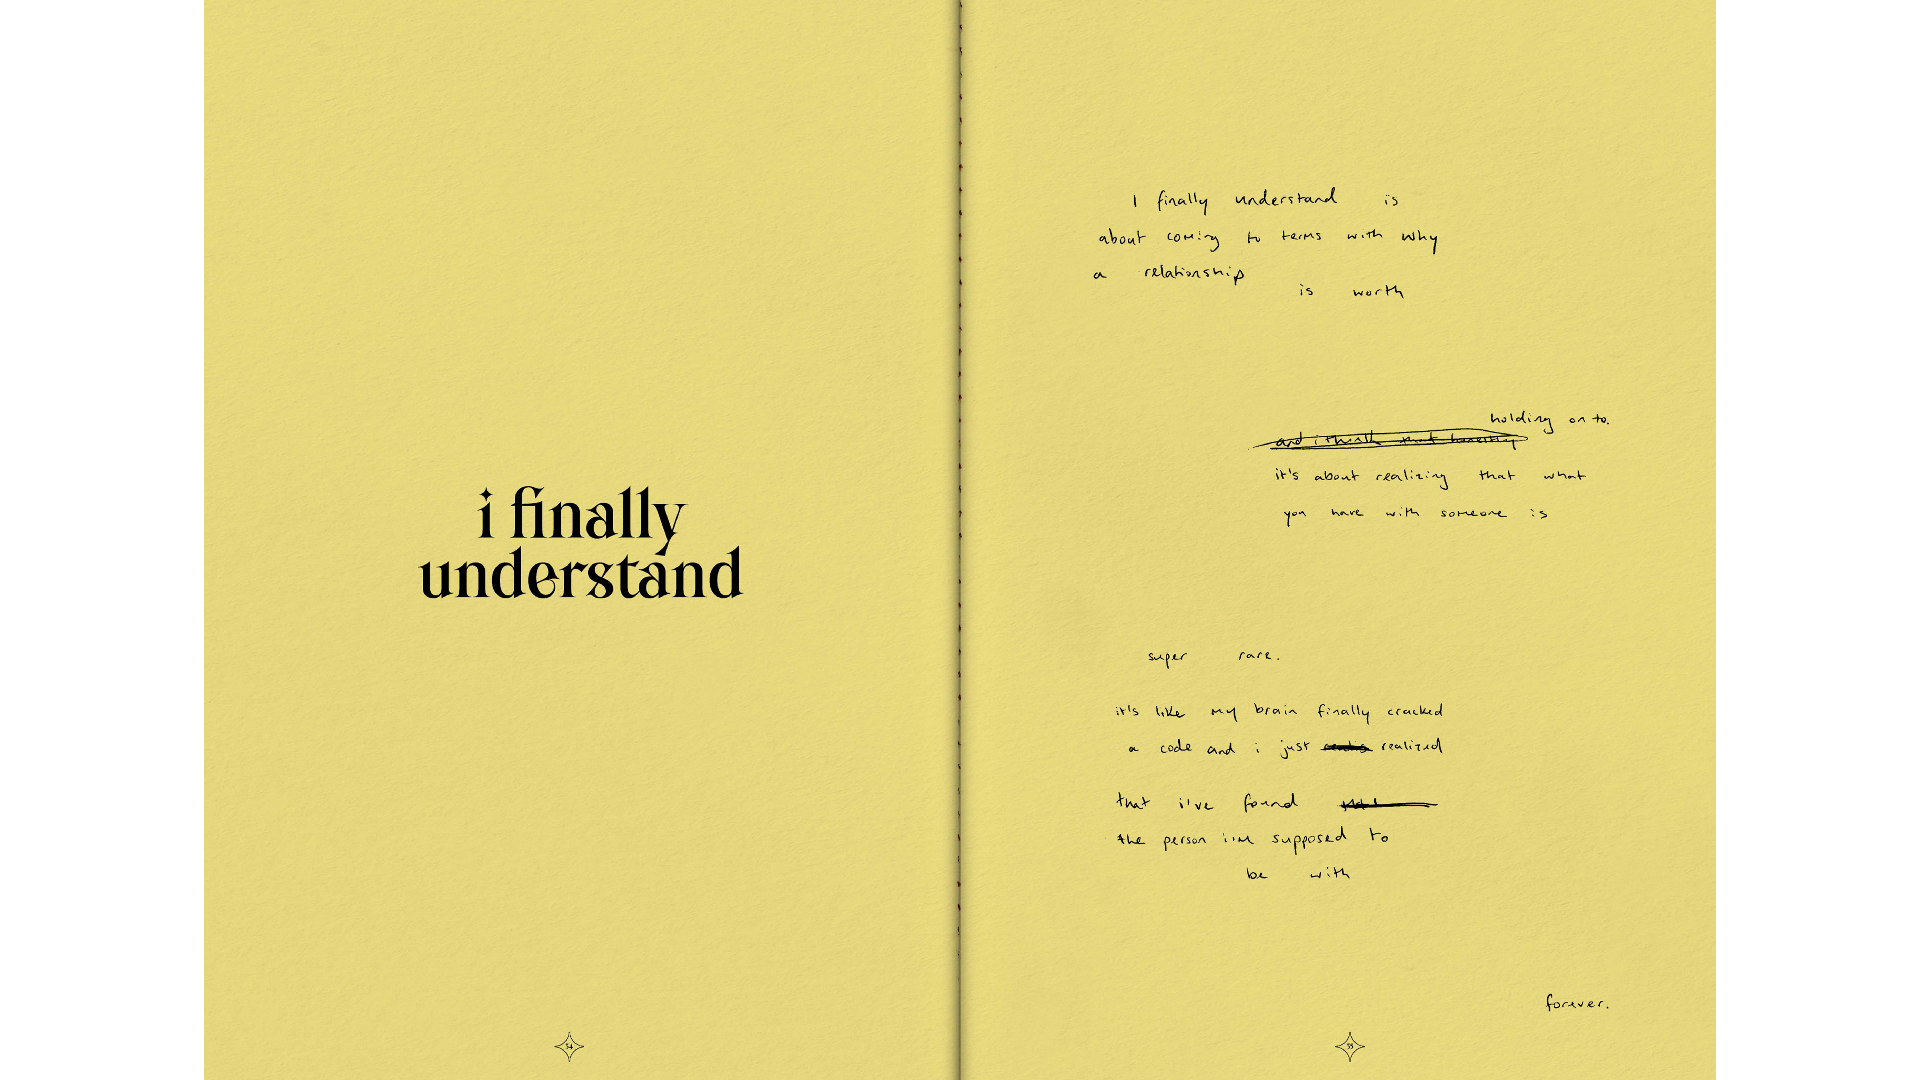 i finally
understand
I finally understand is
about coming to terms with why
a relationship
is worth
holding on to.
and i think that honestly
it's about realizing that what
you have with someone is
super rare.
it's like my brain finally cracked
a code and i just realized
that i've found
the person i'm supposed to
be with
forever.
34
35